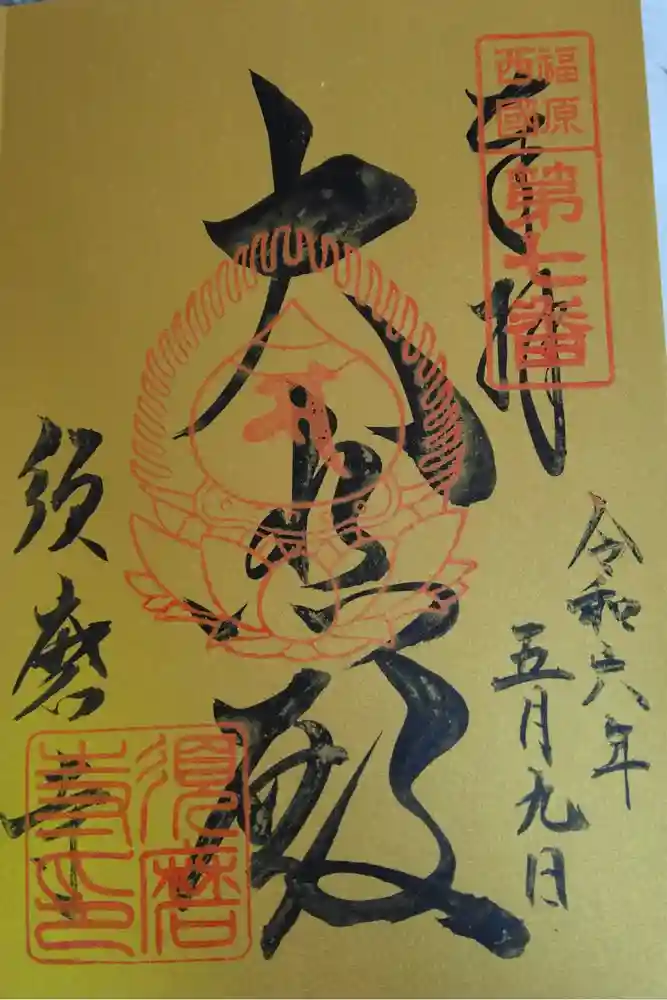 福原
西國
第七番
奉拝
令和六年
五月九日
大悲殿
須磨寺
須磨
寺印